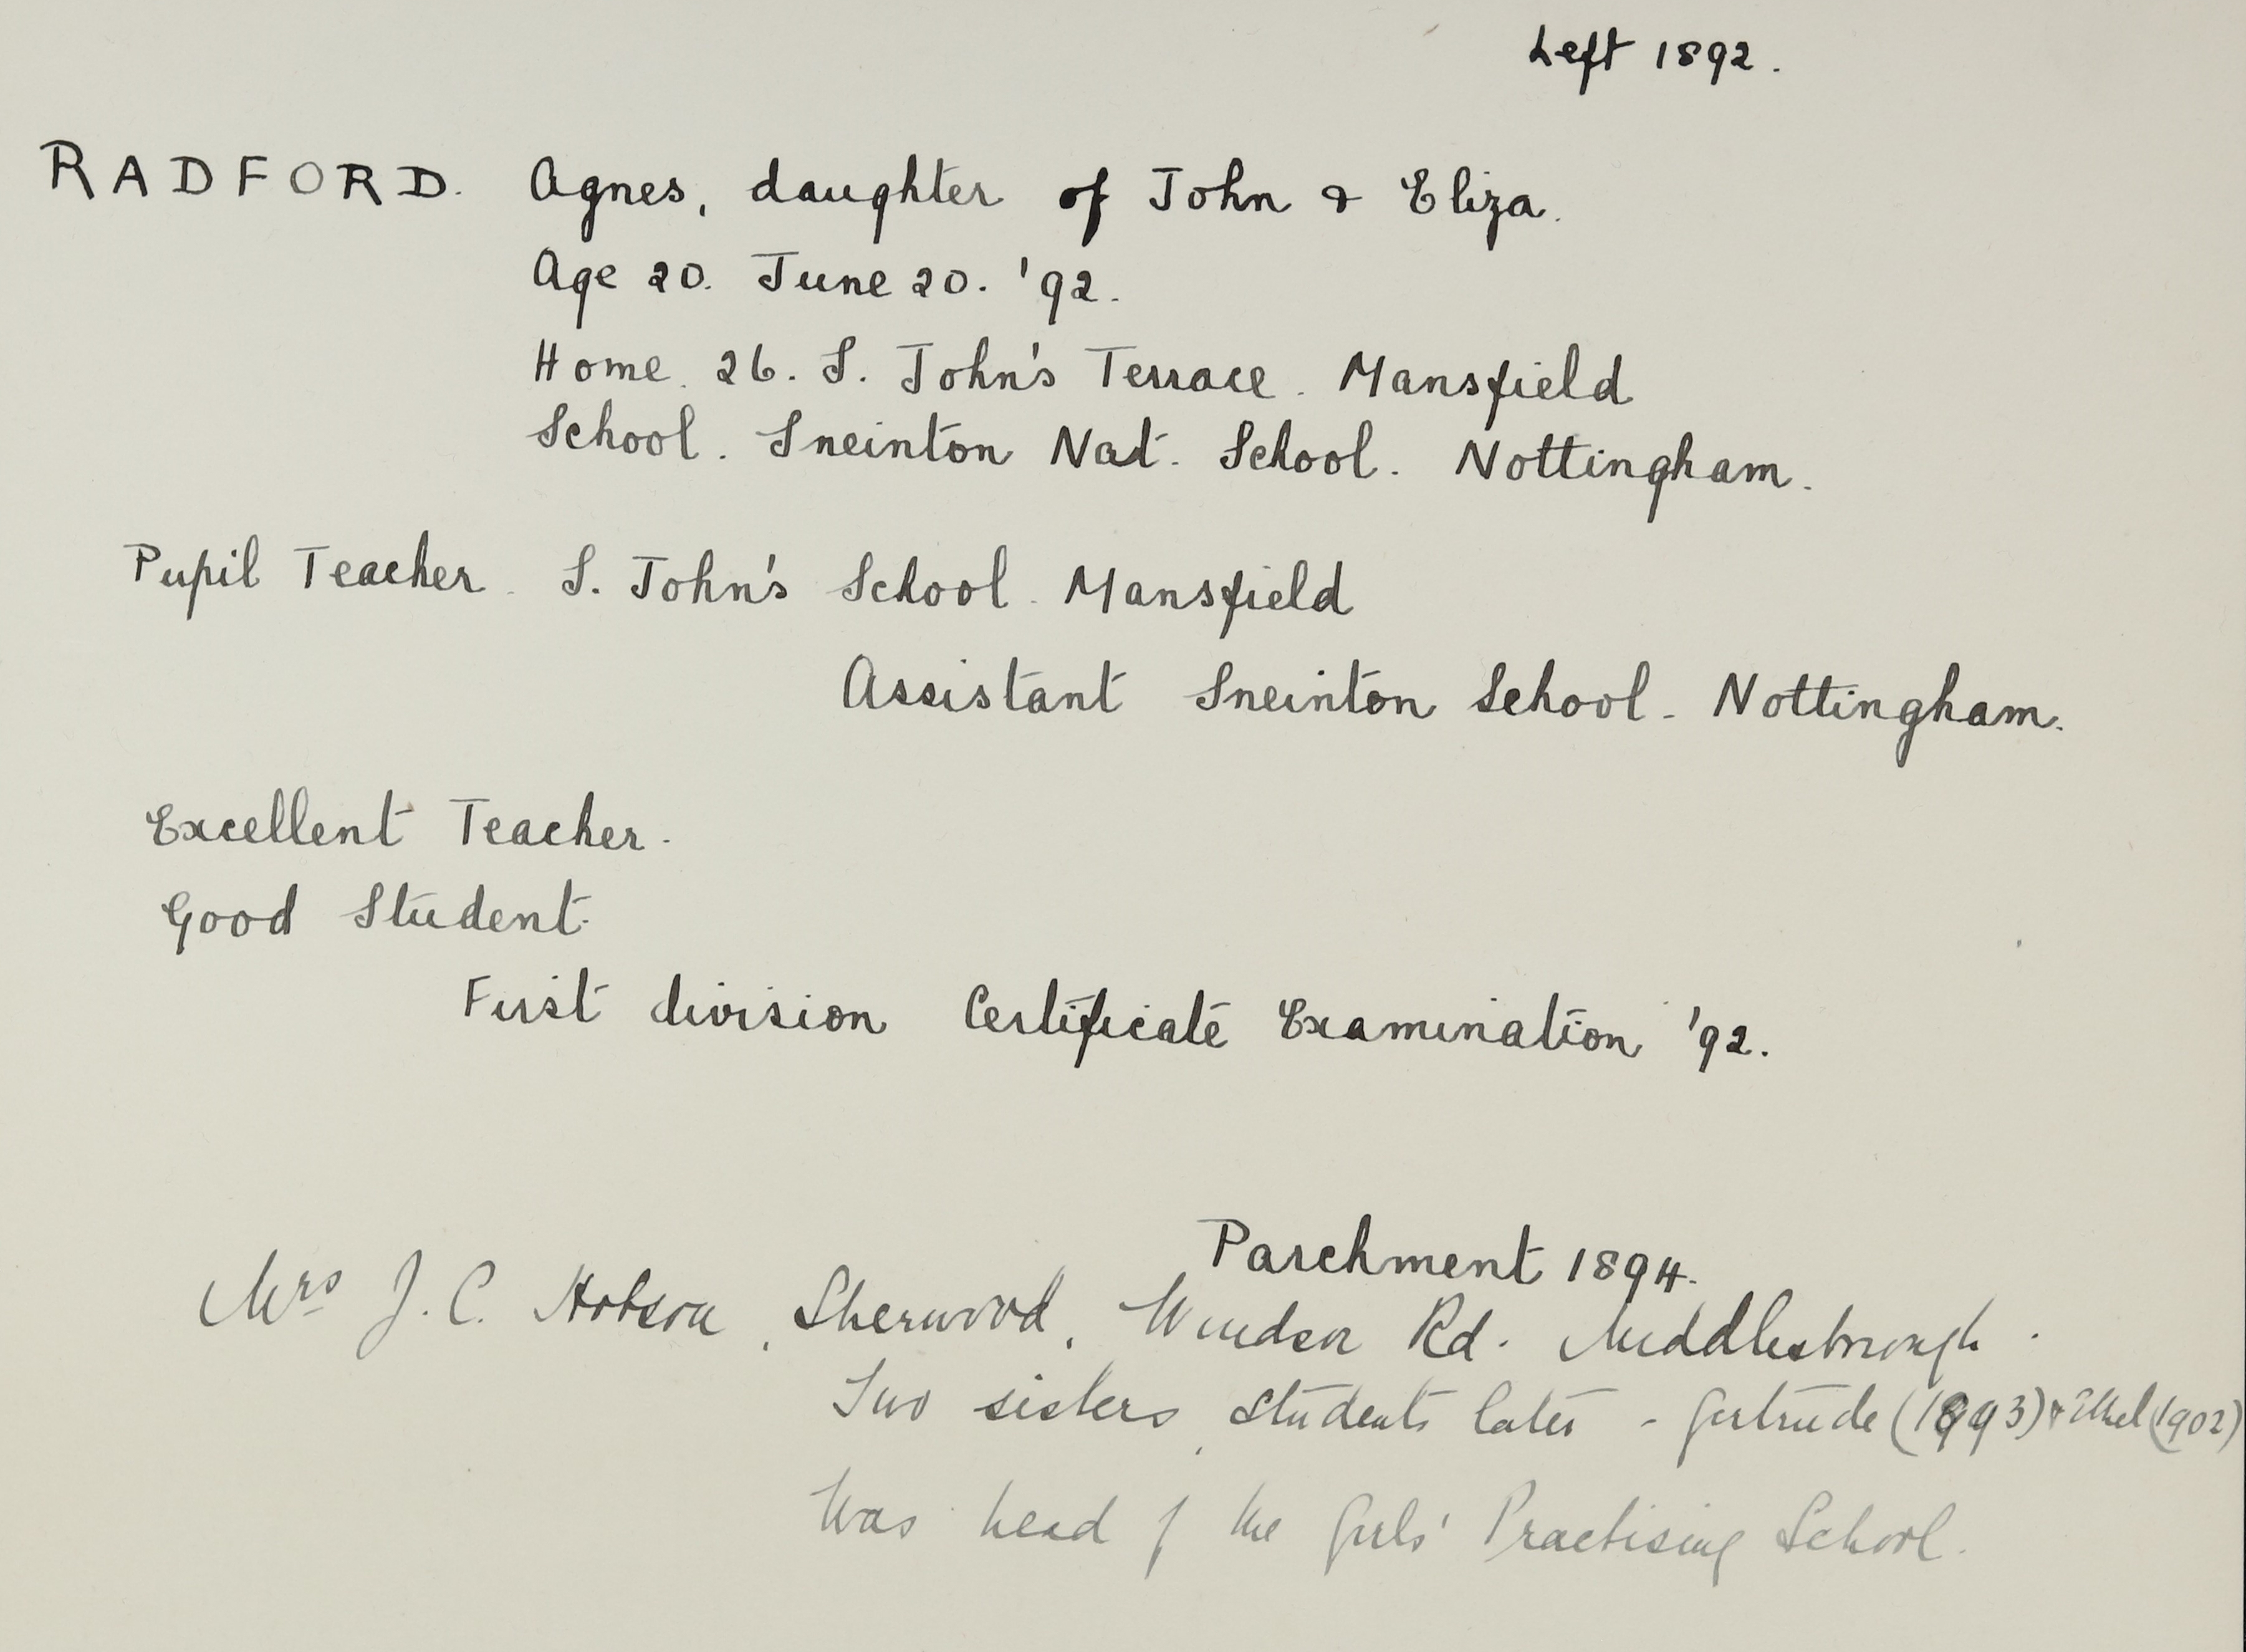 Left 1892.
RADFORD. Agnes, daughter of John & Eliza.
Age 20. June 20. '92.
Home. 26. S. John's Terrace. Mansfield
School. Sneinton Nat. School. Nottingham.
Pupil Teacher. S. John's School. Mansfield
Assistant Sneinton School. Nottingham.
Excellent Teacher.
Good Student.
First division Certificate Examination '92.
Parchment 1894.
Mrs J. C. Hobson, Sherwood, Windsor Rd. Middlesbrough.
Two sisters, students later - Gertrude (1893) & Ethel (1902)
Was head of the Girls' Practising School.